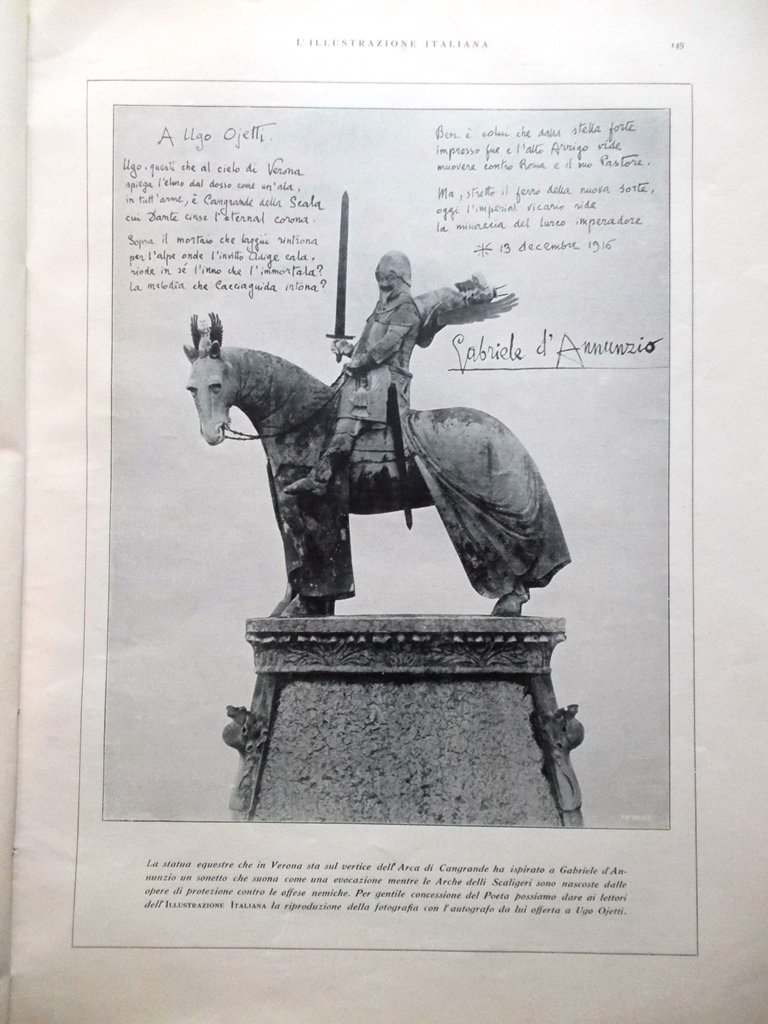 L'ILLUSTRAZIONE ITALIANA
149
A Ugo Ojetti.
Ugo, questi che al cielo di Verona
spiega l'elmo dal dosso come un'ala,
in tutt'arme, è Cangrande della Scala
cui Dante cinse l'aternal corona.
Sopra il mortaio che laggiù rintrona
per l'alpe onde l'invitto Adige cala,
riode in sé l'inno che l'immortala?
la melodia che Cacciaguida intona?
Ben è colui che dalla stella forte
impresso fue e l'alto Arrigo vide
muovere contro Roma e il suo Pastore.
Ma, stretto il ferro della nuova sorte,
oggi l'imperial vicario ride
la minaccia del lurco imperadore
13 decembre 1916
Gabriele d'Annunzio
La statua equestre che in Verona sta sul vertice dell'Arca di Cangrande ha ispirato a Gabriele d'An-
nunzio un sonetto che suona come una evocazione mentre le Arche delli Scaligeri sono nascoste dalle
opere di protezione contro le offese nemiche. Per gentile concessione del Poeta possiamo dare ai lettori
dell'ILLUSTRAZIONE ITALIANA la riproduzione della fotografia con l'autografo da lui offerta a Ugo Ojetti.